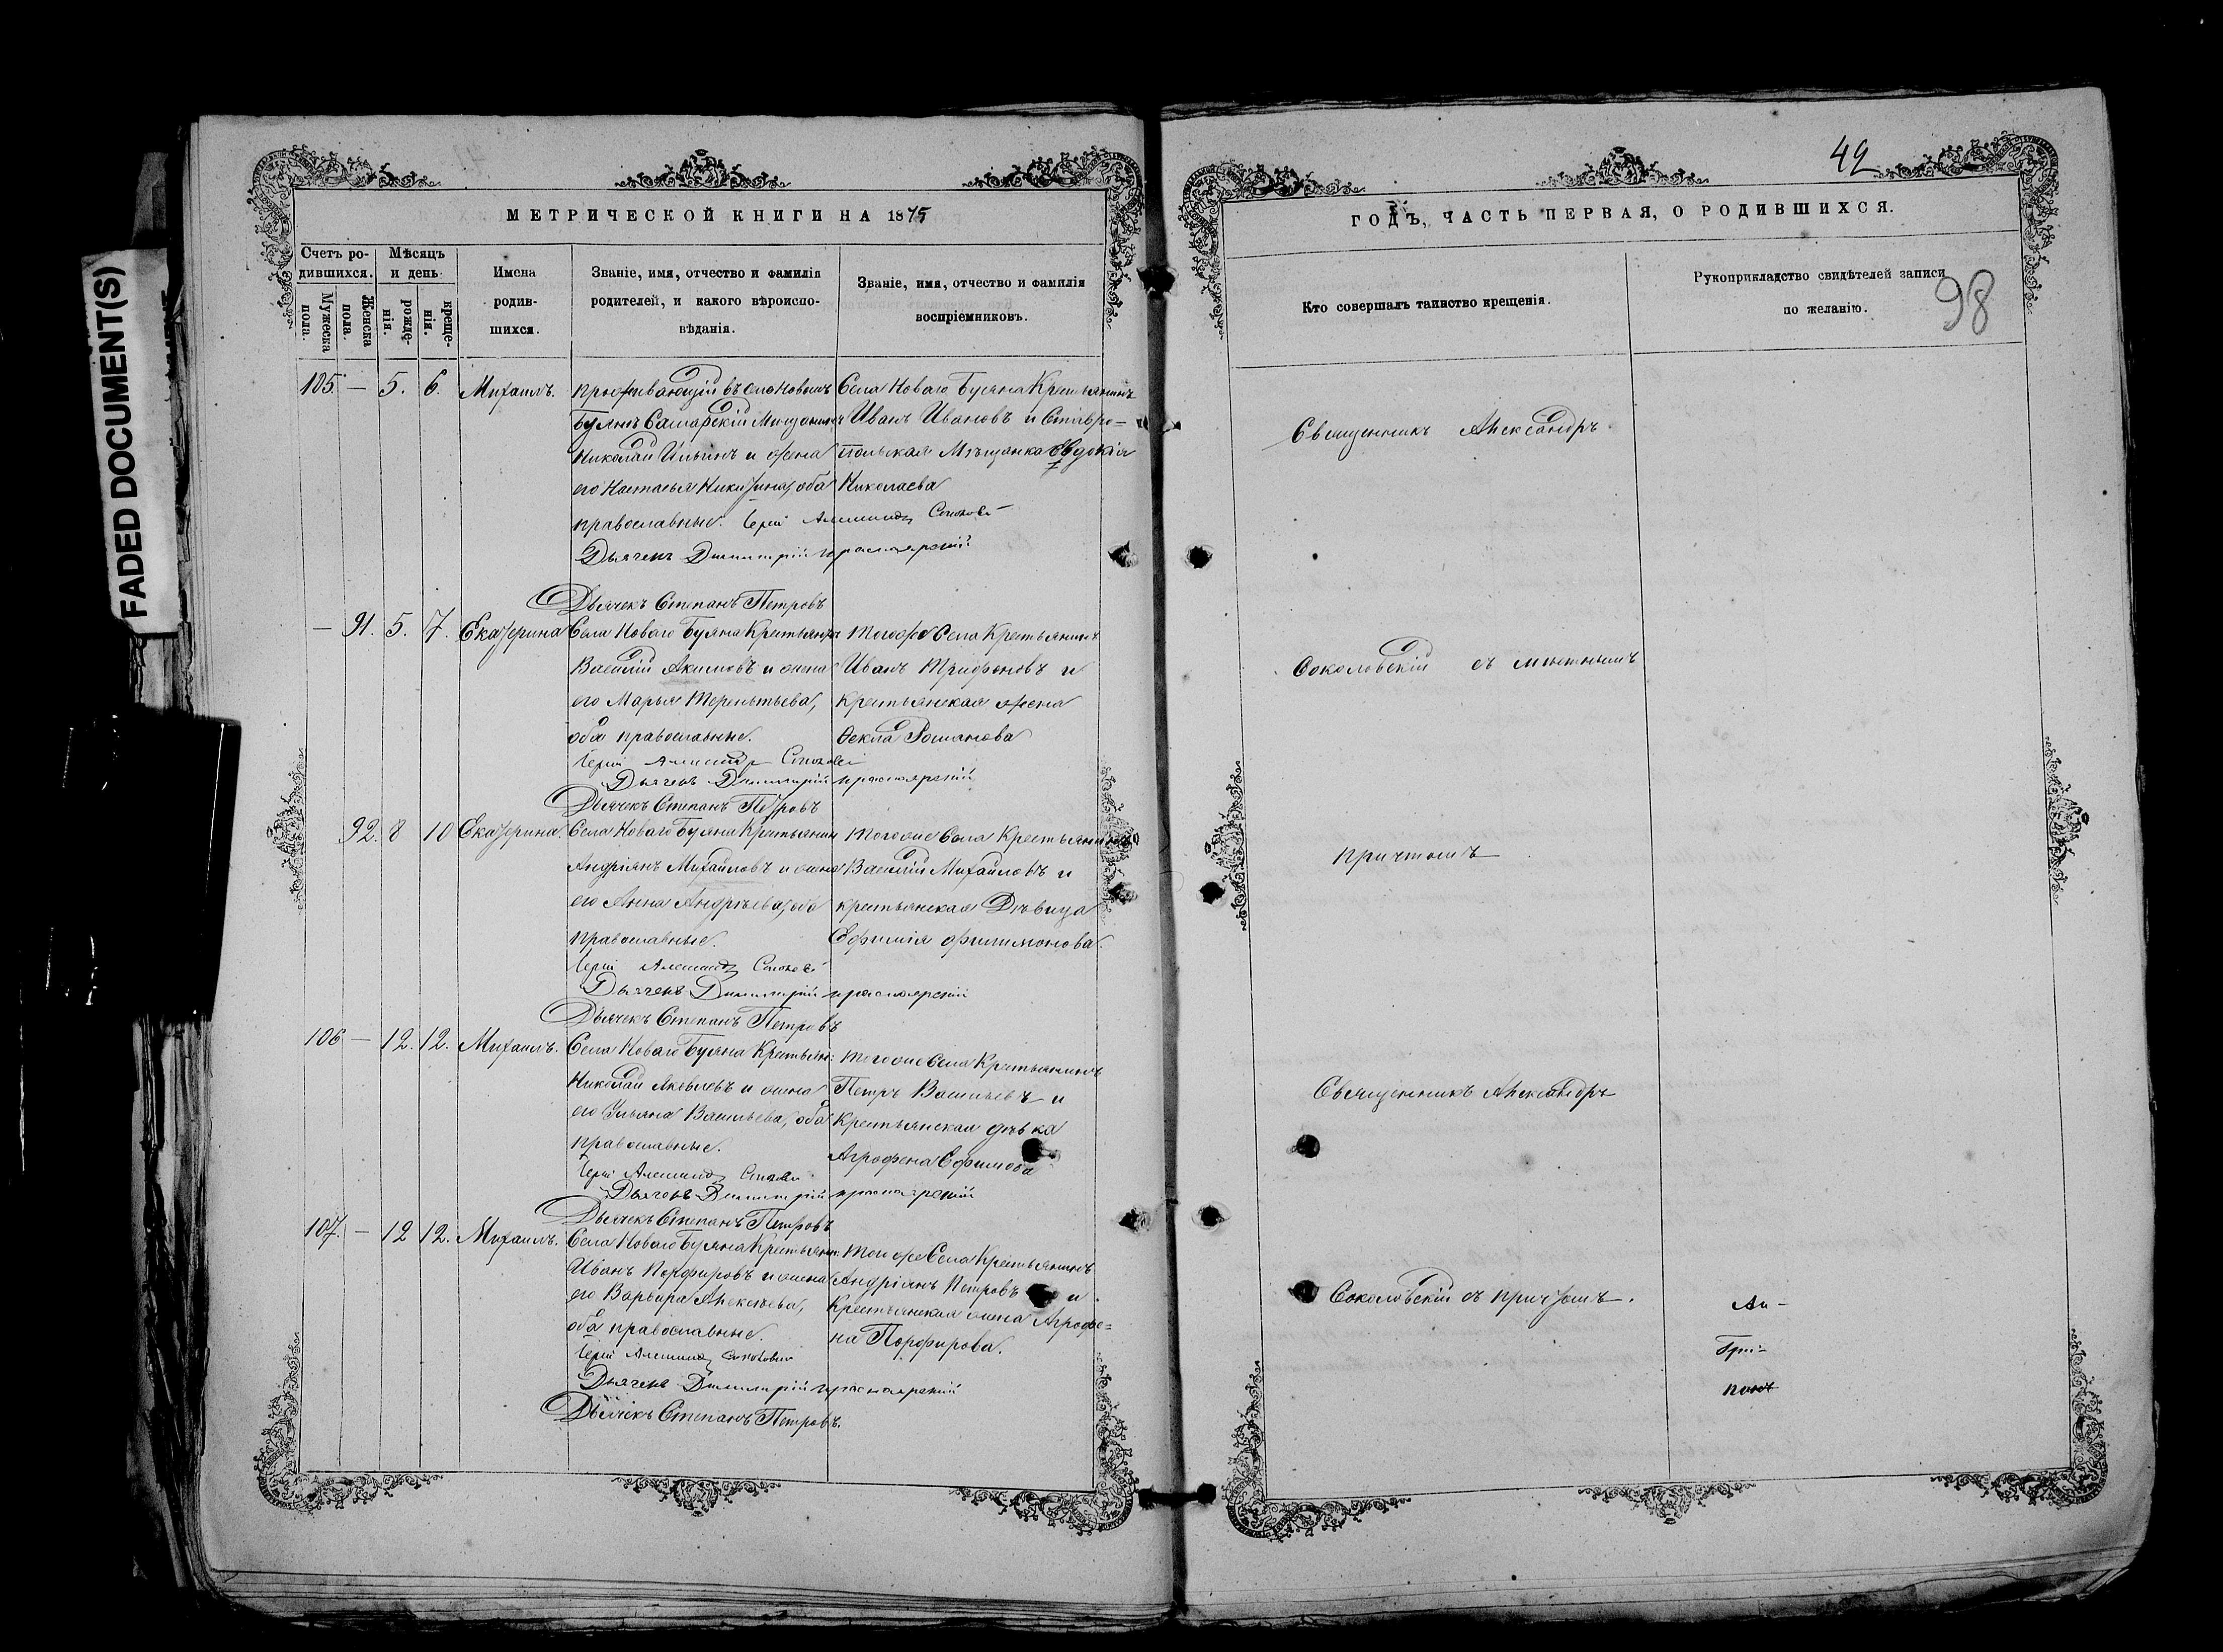 FADED DOCUMENT(S)
МЕТРИЧЕСКОЙ КНИГИ НА 1875
Счетъ родившихся.
Мужеска пола.
Женска пола.
Мѣсяцъ и день
рожденія.
крещенія.
Имена родившихся.
Званіе, имя, отчество и фамилія
родителей, и какого вѣроиспо-
вѣданія.
Званіе, имя, отчество и фамилія
воспріемниковъ.
105. — 5. 6. Михаилъ.
проживающій въ селѣ Новомъ
Буянѣ Самарскій Мещанинъ
Николай Ильинъ и жена
его Настасья Никитина, оба
православные.
Села Новаго Буяна Крестьянинъ
Иванъ Ивановъ и Ставро-
польская Мѣщанка Евдокія
Николаева
Іерей Александръ Соколовскій
Дьячекъ Димитрій Красноярскій
Дьячекъ Степанъ Петровъ
— 91. 5. 7. Екатерина
Села Новаго Буяна Крестьянинъ
Василій Акимовъ и жена
его Марья Терентьева,
оба православные.
Тогоже Села Крестьянинъ
Иванъ Трифоновъ и
крестьянская жена
Ѳекла Романова
Іерей Александръ Соколовскій
Дьячекъ Димитрій Красноярскій
Дьячекъ Степанъ Петровъ
92. 8 10 Екатерина.
Села Новаго Буяна Крестьянин
Андріянъ Михайловъ и жена
его Анна Андрѣева, оба
православные.
Тогоже Села Крестьянинъ
Василій Михайловъ и
крестьянская Дѣвица
Ефимія Филимонова.
Іерей Александръ Соколовскій
Дьячекъ Димитрій Красноярскій
Дьячекъ Степанъ Петровъ
106 — 12. 12. Михаилъ.
Села Новаго Буяна Крестьян:
Николай Яковлевъ и жена
его Ульяна Васильева, оба
православные.
Тогоже Села Крестьянинъ
Петръ Васильевъ и
Крестьянская дѣвка
Агрофена Ефимова
Іерей Александръ Соколовскій
Дьячекъ Димитрій Красноярскій
Дьячекъ Степанъ Петровъ
107. — 12 12. Михаилъ.
Села Новаго Буяна Крестьянин:
Иванъ Порфировъ и жена
его Варвара Алексѣева,
оба православные.
Тогоже Села Крестьянинъ
Андріянъ Петровъ и
Крестьянская жена Агрофе=
на Порфирова.
Іерей Александръ Соколовскій
Дьячекъ Димитрій Красноярскій
Дьячекъ Степанъ Петровъ.
42
98
ГОДЪ, ЧАСТЬ ПЕРВАЯ, О РОДИВШИХСЯ.
Кто совершалъ таинство крещенія.
Рукоприкладство свидѣтелей записи
по желанію.
Священникъ Александръ
Соколовскій съ мѣстнымъ
причтомъ
Священникъ Александръ
Соколовскій съ причтомъ.